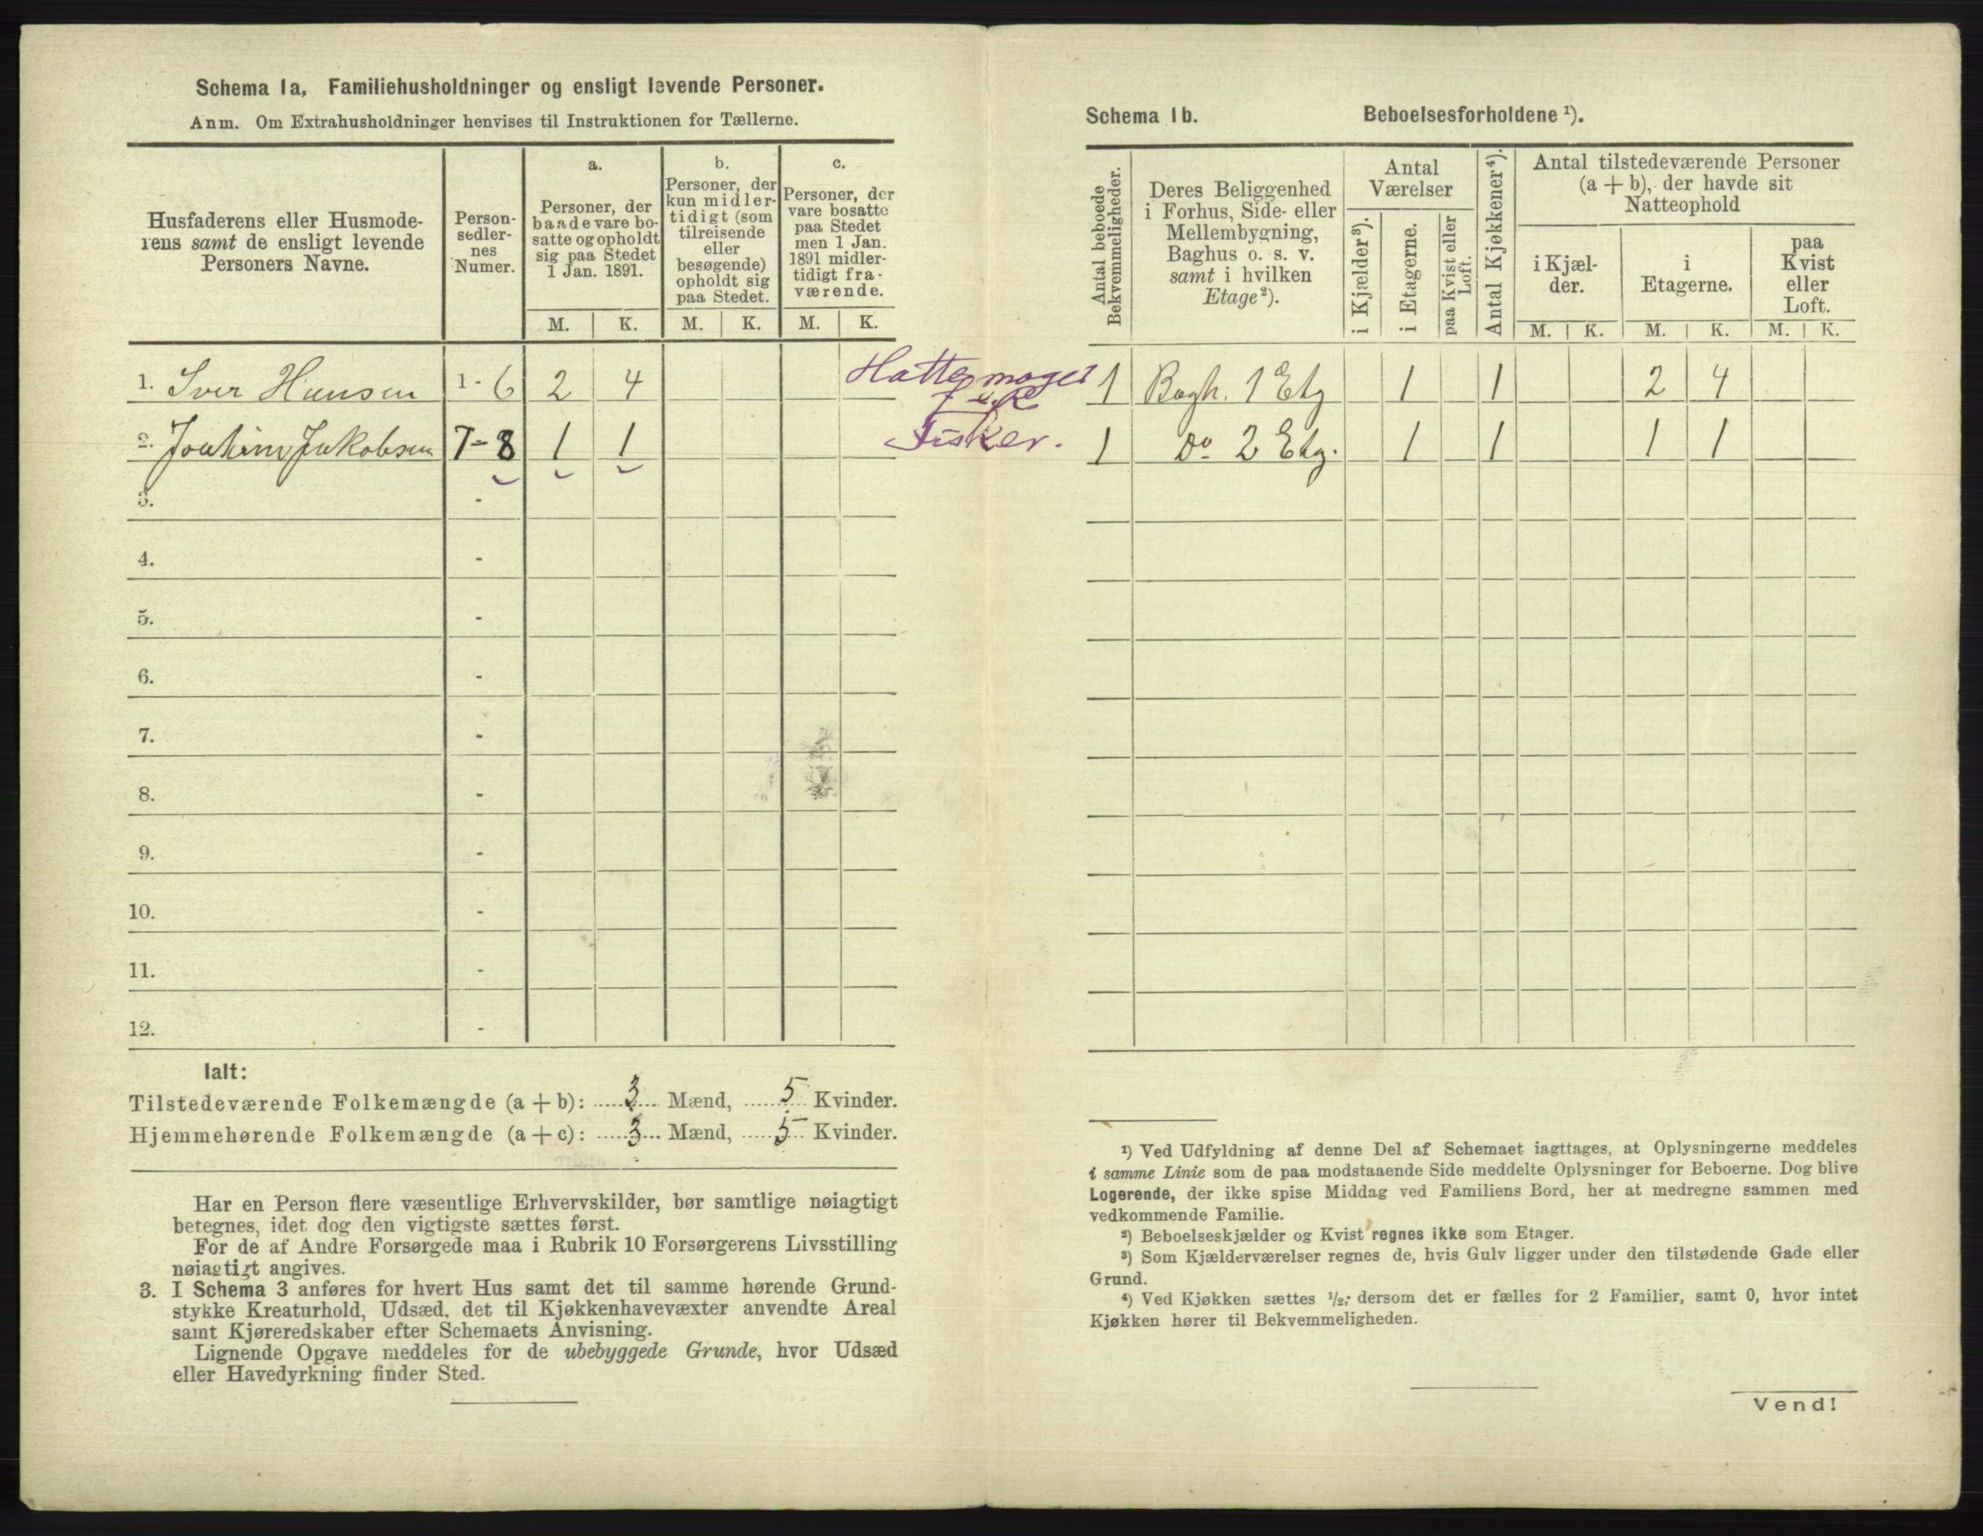 Schema 1a, Familiehusholdninger og ensligt levende Personer.
Anm. Om Extrahusholdninger henvises til Instruktionen for Tællerne.
Husfaderens eller Husmode-
rens samt de ensligt levende
Personers Navne.
Person-
sedler-
nes
Numer.
a.
Personer, der
baade vare bo-
satte og opholdt
sig paa Stedet
1 Jan. 1891.
b.
Personer, der
kun midler-
tidigt (som
tilreisende
eller
besøgende)
opholdt sig
paa Stedet.
c.
Personer, der
vare bosatte
paa Stedet
men 1 Jan.
1891 midler-
tidigt fra-
værende.
M. K. M. K. M. K.
1. Iver Hansen 1 - 6 2 4 Hattemager
2. Joakim Jakobsen 7 - 8 1 1 Fisker.
3. -
4. -
5. -
6. -
7. -
8. -
9. -
10. -
11. -
12. -
Ialt:
Tilstedeværende Folkemængde (a + b): 3 Mænd, 5 Kvinder.
Hjemmehørende Folkemængde (a + c): 3 Mænd, 5 Kvinder.
Har en Person flere væsentlige Erhvervskilder, bør samtlige nøiagtigt
betegnes, idet dog den vigtigste sættes først.
For de af Andre Forsørgede maa i Rubrik 10 Forsørgerens Livsstilling
nøiagtigt angives.
3. I Schema 3 anføres for hvert Hus samt det til samme hørende Grund-
stykke Kreaturhold, Udsæd, det til Kjøkkenhavevæxter anvendte Areal
samt Kjøreredskaber efter Schemaets Anvisning.
Lignende Opgave meddeles for de ubebyggede Grunde, hvor Udsæd
eller Havedyrkning finder Sted.
Schema 1b. Beboelsesforholdene ¹).
Antal beboede
Bekvemmeligheder.
Deres Beliggenhed
i Forhus, Side- eller
Mellembygning,
Baghus o. s. v.
samt i hvilken
Etage²).
Antal
Værelser
i Kjælder³).
i Etagerne.
paa Kvist eller
Loft.
Antal Kjøkkener⁴).
Antal tilstedeværende Personer
(a + b), der havde sit
Natteophold
i Kjæl-
der.
i
Etagerne.
paa
Kvist
eller
Loft.
M. K. M. K. M. K.
1 Bagh. 1 Etg 1 1 2 4
1 Do 2 Etg. 1 1 1 1
¹) Ved Udfyldning af denne Del af Schemaet iagttages, at Oplysningerne meddeles
i samme Linie som de paa modstaaende Side meddelte Oplysninger for Beboerne. Dog blive
Logerende, der ikke spise Middag ved Familiens Bord, her at medregne sammen med
vedkommende Familie.
²) Beboelseskjælder og Kvist regnes ikke som Etager.
³) Som Kjælderværelser regnes de, hvis Gulv ligger under den tilstødende Gade eller
Grund.
⁴) Ved Kjøkken sættes ½, dersom det er fælles for 2 Familier, samt 0, hvor intet
Kjøkken hører til Bekvemmeligheden.
Vend!